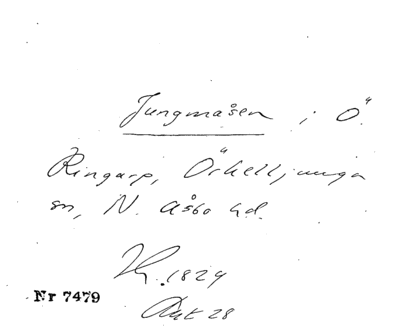 Jungmåsen i Ö.
Ringarp, Örkelljunga
sn, N. Åsbo hd.
1829
Nr 7479
Akt 28